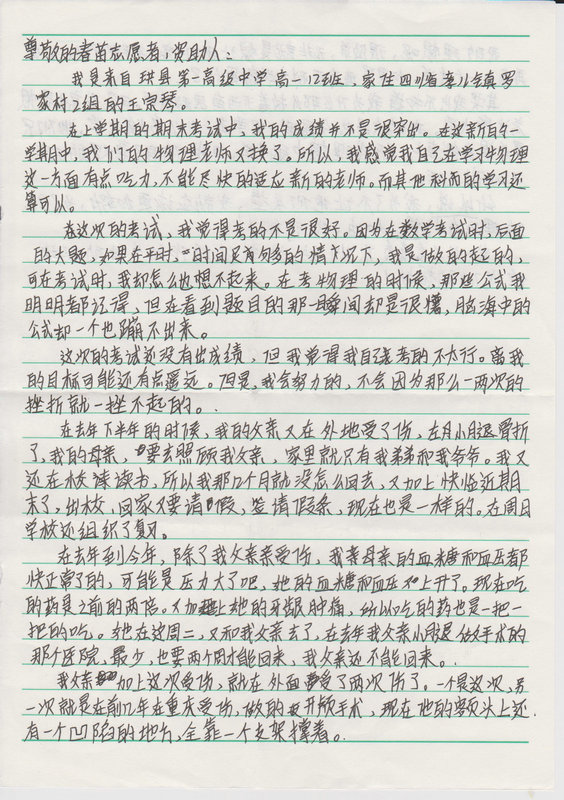 尊敬的春苗志愿者,资助人:
我是来自珙县第一高级中学高一12班,家住四川省孝儿镇罗
家村2组的王宗琴。
在上学期的期末考试中,我的成绩并不是很突出。在这新的一
学期中,我们的物理老师又换了。所以,我感觉我自己在学习物理
这一方面有点吃力,不能尽快的适应新的老师。而其他科而的学习还
算可以。
在这次的考试,我觉得考的不是很好。因为在数学考试时,后面
的大题,如果在平时,时间足有够多的情况下,我是做的起的,
可在考试时,我却怎么也想不起来。在考物理的时候,那些公式我
明明都记得,但在看到题目的那一瞬间却是很懵,脑海中的
公式却一个也蹦不出来。
这次的考试还没有出成绩,但我觉得我自己考的不太行。离我
的目标可能还有点遥远。但是,我会努力的,不会因为那么一两次的
挫折就一挫不起的。
在去年下半年的时候,我的父亲又在外地受了伤,左月小腿骨折
了,我的母亲,要去照顾我父亲,家里就只有我弟弟和我爷爷。我又
还在校读读书,所以我那几个月就没怎么回去,又加上快临近期
末了,出校,回家又要请假,签请假条,现在也是一样的。在周日
学校还组织了复习。
在去年到今年,除了我父亲亲受伤,我亲母亲的血糖和血压都
快正常了的,可能是压力大了吧,她的血糖和血压又上升了。现在吃
的药是之前的两倍。又加上她的牙龈肿痛,所以吃的药也是一把一
把的吃。她在这周二,又和我父亲去了,在去年我父亲小腿做手术的
那个医院,最少,也要两个周才能回来,我父亲还不能回来。
我父亲加上这次受伤,就在外面受了两次伤了。一个是这次,另
一次就是在前几年在重庆受伤,做的开颅手术,现在他的额头上还
有一个凹陷的地方,全靠一个支架撑着。